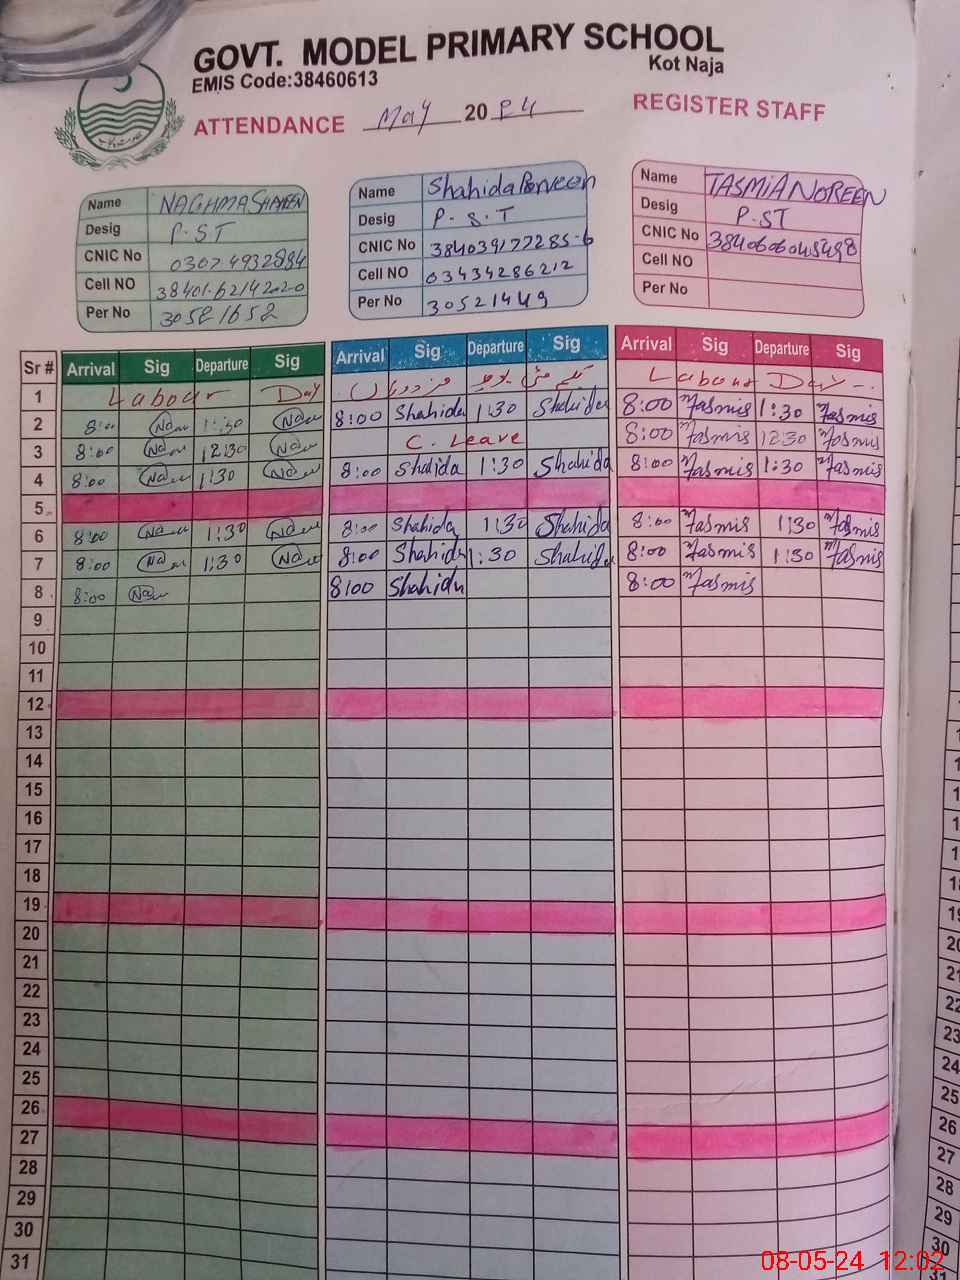 GOVT. MODEL PRIMARY SCHOOL
Kot Naja
EMIS Code:38460613
ATTENDANCE May 20 24 REGISTER STAFF
Name NAGHMA SHAHEEN
Desig P.ST
CNIC No 03074932884
Cell NO 38401-6214202-0
Per No 30521652
Name Shahida Parveen
Desig P.S.T
CNIC No 384039177285-6
Cell NO 03434286212
Per No 30521449
Name TASMIA NOREEN
Desig P.ST
CNIC No 3840606045498
Cell NO
Per No
Sr # Arrival Sig Departure Sig Arrival Sig Departure Sig Arrival Sig Departure Sig
1 Labour Day یکم مئی یوم مزدوراں Labour Day
2 8:00 1:30 8:00 Shahida 1:30 Shahida 8:00 Tasmia 1:30 Tasmia
3 8:00 12:30 C. Leave 8:00 Tasmia 12:30 Tasmia
4 8:00 1:30 8:00 Shahida 1:30 Shahida 8:00 Tasmia 1:30 Tasmia
5
6 8:00 1:30 8:00 Shahida 1:30 Shahida 8:00 Tasmia 1:30 Tasmia
7 8:00 1:30 8:00 Shahida 1:30 Shahida 8:00 Tasmia 1:30 Tasmia
8 8:00 8:00 Shahida 8:00 Tasmia
9
10
11
12
13
14
15
16
17
18
19
20
21
22
23
24
25
26
27
28
29
30
31
08-05-24 12:02